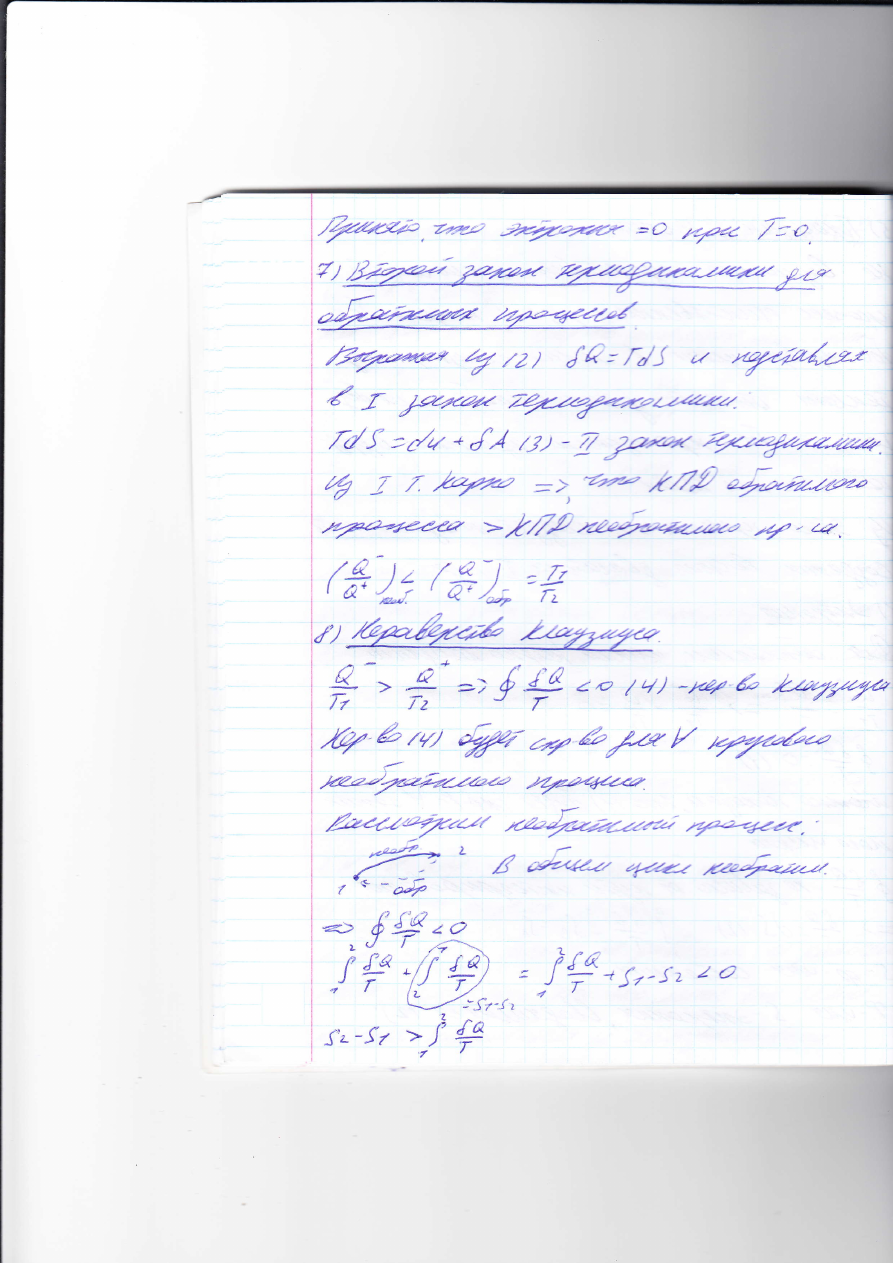 Принято, что энтропия =0 при T=0.
7) Второй закон термодинамики для
обратимых процессов.
Выражая из (2) δQ=TdS и подставляя
в I закон термодинамики:
TdS = du + δA (3) - II закон термодинамики.
Из I т. Карно => что КПД обратимого
процесса > КПД необратимого пр-са.
(Q⁻/Q⁺)необ. < (Q⁻/Q⁺)обр = T1/T2
8) Неравенство Клаузиуса.
Q⁻/T1 > Q⁺/T2 => ∮ δQ/T <0 (4) - нер-во Клаузиуса
Нер-во (4) будет спр-во для ∀ кругового
необратимого процесса.
Рассмотрим необратимый процесс:
необр 2
1 обр В общем цикл необратим.
=> ∮ δQ/T <0
∫₁² δQ/T + ∫₂¹ δQ/T = ∫₁² δQ/T + S1-S2 <0
=S1-S2
S2-S1 > ∫₁² δQ/T